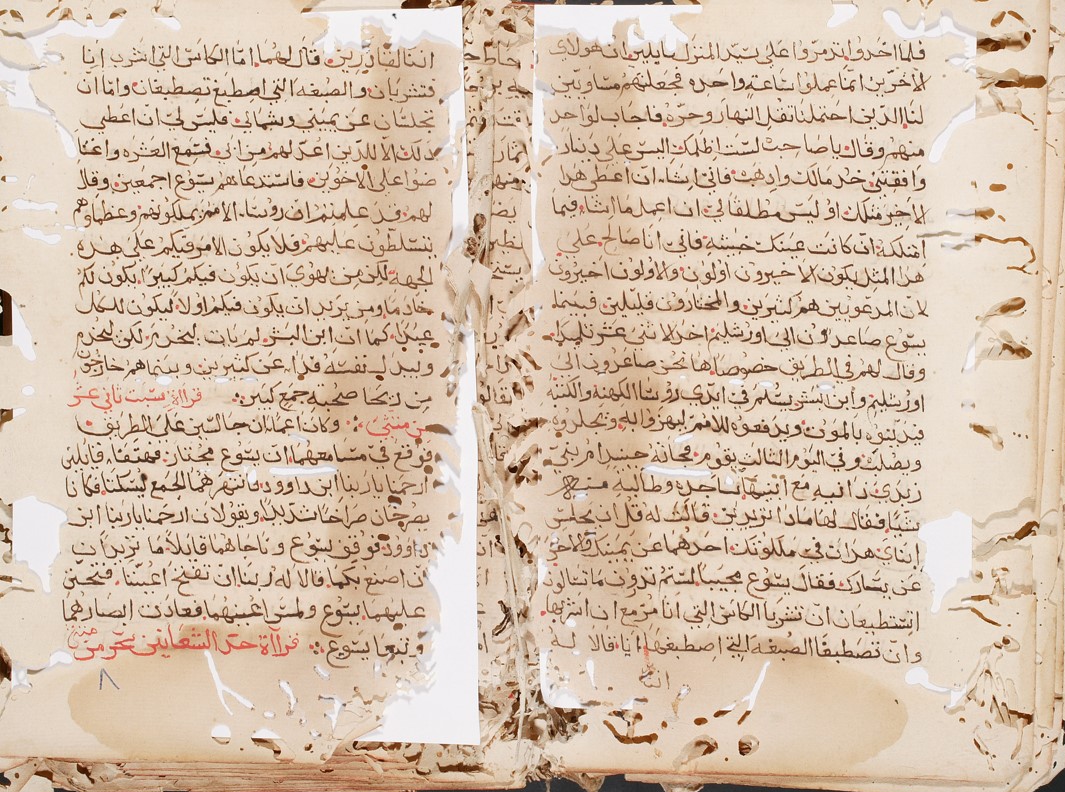 فلما اخذوا تذمروا على سيد المنزل قايلين ان هولاي
الاخرين انما عملوا ساعة واحده فجعلتهم مساويين
لنا الذين احتملنا ثقل النهار وحره فاجاب لواحد
منهم وقال يا صاحب لست اظلمك اليس على دينار
وافقتني خد مالك وادهب فاني اشاء ان اعطي هدا
الاخير مثلك او ليس مطلقا لي ان اعمل ما اشاء فيما
امتلكه ان كانت عينك خبيثه فاني انا صالح على
هدا المثل يكون الاخيرون اولون والاولون اخيرون
لان المدعويين هم كثيرين والمختارون قليلين فبينما
يسوع صاعد الى اورشليم اخد الاثني عشر تلميد
وقال لهم في الطريق خصوصا ها نحن صاعدون الى
اورشليم وابن البشر يسلم في ايدي روسا الكهنه والكتبه
فيدينوه بالموت ويدفعوه للامم ليهزوا به ويجلدوه
ويصلب وفي اليوم الثالث يقوم فجاته حينيد ام بني
زبدي دانيه مع ابنيها ساجده وطالبه منه
شيا فقال لها مادا تريدين قالت له قل ان يجلس
ابناي هدان في ملكوتك احدهما عن يمينك والاخر
عن يسارك فقال يسوع مجيبا لستم تدرون ما تسالون
اتستطيعان ان تشربا الكاس التي انا مزمع ان اشربها
وان تصطبغا الصبغه التي اصطبغها انا قالا له
اننا
اننا لقادرين قال لهما اما الكاس التي اشرب انا
فتشربان والصبغه التي اصطبغ تصطبغان واما ان
تجلسان عن يميني وشمالي فليس لي ان اعطي
دلك الا للدين اعد لهم من ابي فسمع العشره واغتا
ضوا على الاخوين فاستدعاهم يسوع اجمعين وقال
لهم قد علمتم ان روساء الامم يملكونهم وعظماوهم
يتسلطون عليهم فلا يكون الامر فيكم على هده
الجهه لكن من يهوى ان يكون فيكم كبيرا يكون لكم
خادما ومن يريد ان يكون فيكم اولا فيكون للكل
عبدا كما ان ابن البشر لم يات ليخدم لكن ليخدم
وليبدل نفسه فدا عن كثيرين وبينما هم خارجين
من ريحا صحبه جمع كثير قراة سبت ثاني عشر
من متى وكان اعمايان جالسين على الطريق
فوقع في مسامعهما ان يسوع مجتاز فهتفا قايلين
ارحمنا يا ربنا ابن داوود فانتهرهما الجمع ليسكتا فكانا
يصرخان صراخا شديدا ويقولان ارحمنا يا ربنا ابن
داوود فوقف يسوع وناجاهما قايلا ما تريدان
ان اصنع بكما قالا له ربنا ان تفتح اعيننا فتحنن
عليهما يسوع ولمس اعينهما فعادت ابصارهما
وتبعا يسوع قراة حد الشعانين سحر من متى